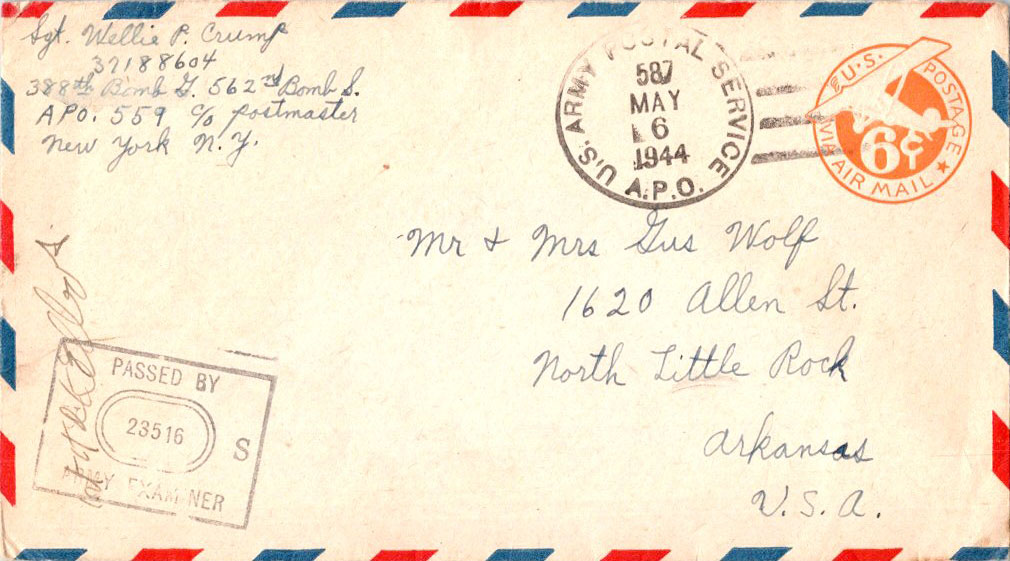 Sgt. Wellie P. Crump
37188604
388th Bomb G. 562nd Bomb S.
APO. 559 c/o postmaster
New York N.Y.
U.S. ARMY POSTAL SERVICE
587
MAY
6
1944
A.P.O.
U.S. POSTAGE
6¢
VIA AIR MAIL
Mr & Mrs Gus Wolf
1620 Allen St.
North Little Rock
Arkansas
U.S.A.
PASSED BY
23516
S
ARMY EXAMINER